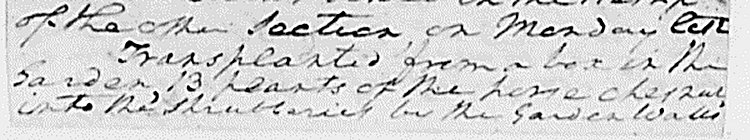 of the other Section on Monday last
Transplanted from a box in the
Garden 13 plants of the horse chesnut
into the shrubberies by the Garden Walls